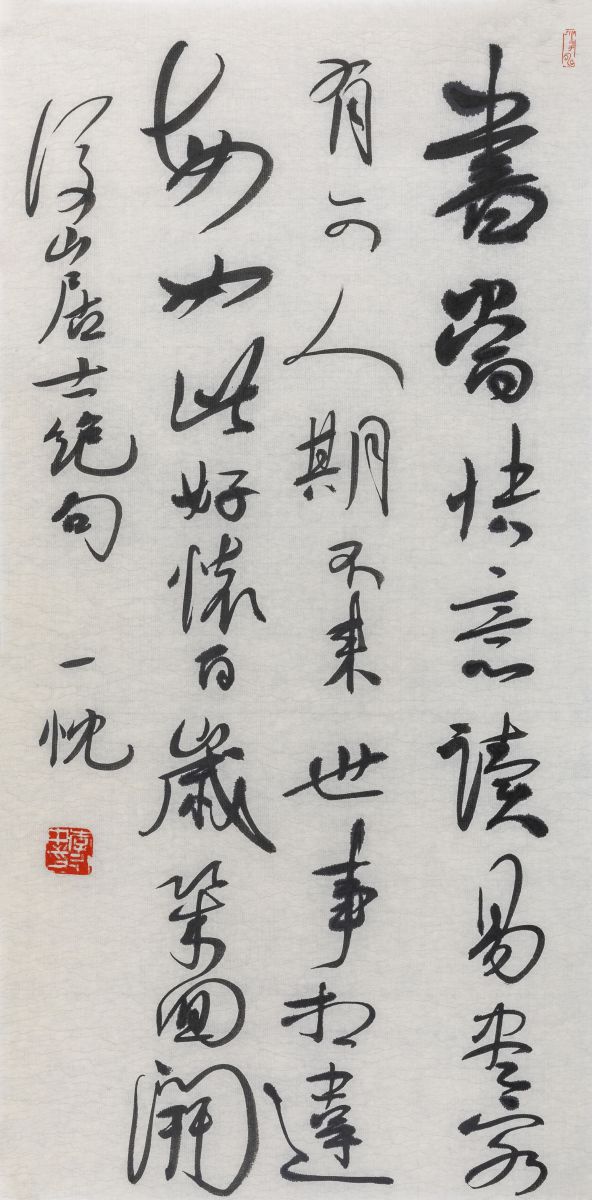 書當快意讀易盡客
有可人期不來世事相違
每如此好懷百歲幾回開
後山居士絶句 一忱